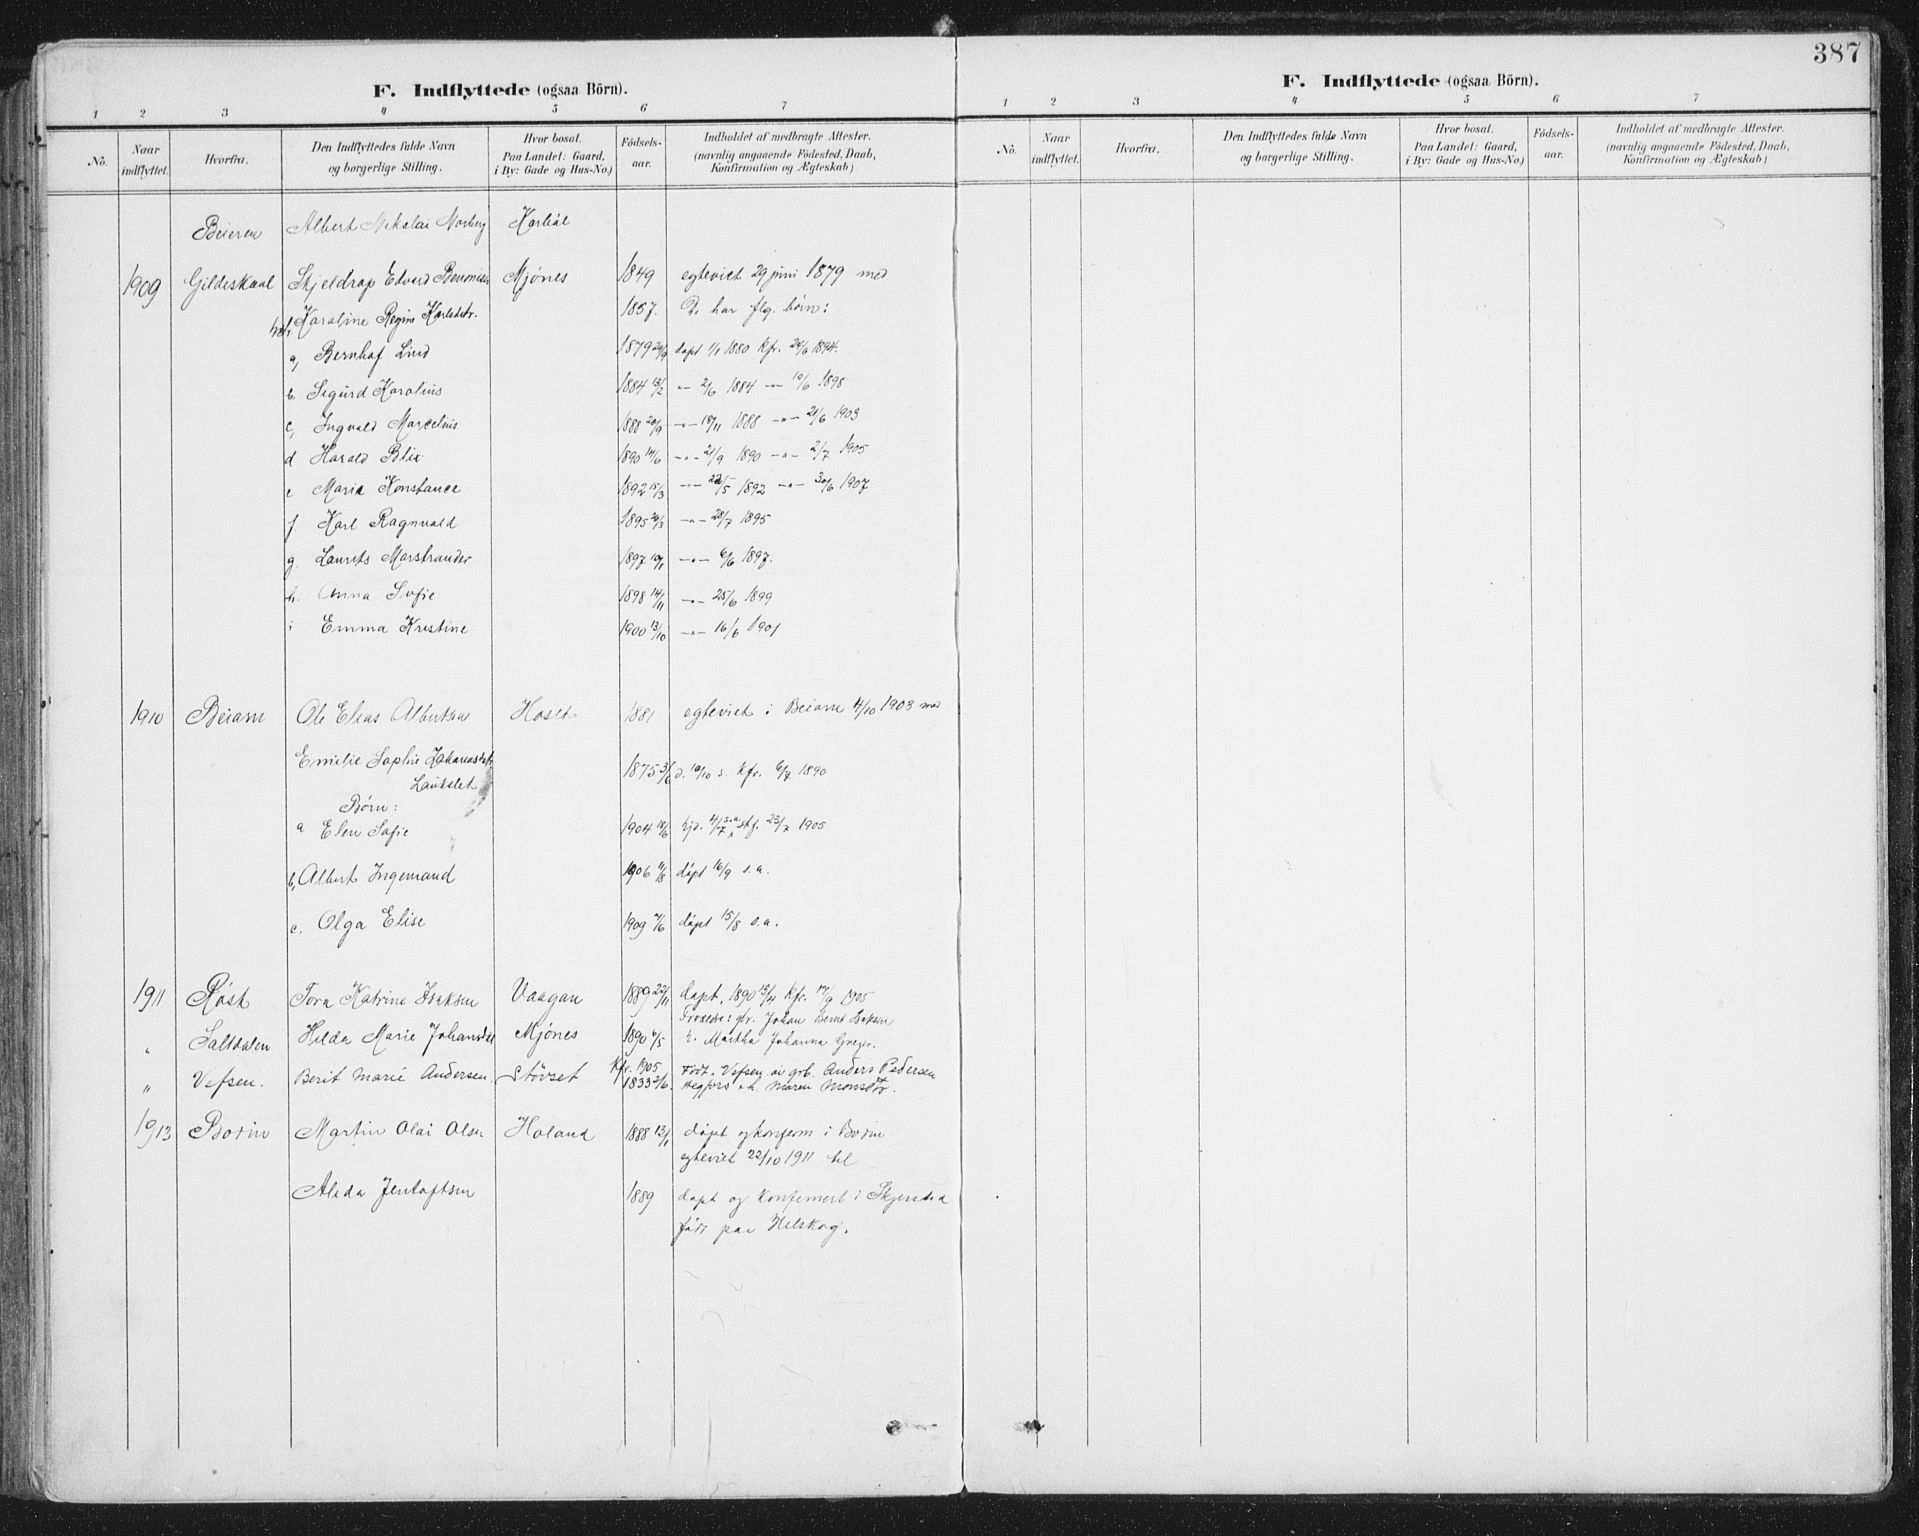 387
F. Indflyttede (ogsaa Börn).
1 2 3 4 5 6 7
No. Naar indflyttet. Hvorfra. Den Indflyttedes fulde Navn og borgerlige Stilling. Hvor bosat. Paa Landet: Gaard, i By: Gade og Hus-No.) Födsels-aar. Indholdet af medbragte Attester. (navnlig angaaende Födested, Daab, Konfirmation og Ægteskab)
Beieren Albert Nikolai Norberg
1909 Gildeskaal Skjeldrap Edvard Mjónes 1849 egteviet 29 juni 1879 med
Karoline Regine Karlsdtr. 1857. De har flg. børn:
a, Bernhof Lind 1879 24/9 døpt 1/1 1880 kfr. 24/6 1894.
b Sigurd Karolius 1884 13/2 -"- 2/6 1884 -"- 19/6 1898
c, Ingvald Marcelius 1888 20/9 -"- 18/11 1888 -"- 21/6 1903
d Harald Blix 1890 14/6 -"- 21/9 1890 -"- 2/7 1905
e Marie Konstance 1892 15/3 -"- 22/5 1892 -"- 30/6 1907
f. Karl Ragnvald 1895 26/3 -"- 28/7 1895
g. Laurits Marstrander 1897 10/1 -"- 6/6 1897.
h. Anna Sofie 1898 14/11 -"- 25/6 1899
i Emma Kristine 1900 13/10 -"- 16/6 1901
1910 Beiarn Ole Elias Albertsen Hoset 1881 egteviet i Beiarn 4/10 1903 med
Emelie Sophie Zakariasdat. 1875 3/6 d. 10/10 s. kfr. 6/7 1890
Laukslet
Børn:
a Elen Sofie 1904 18/6 hjd. 4/7 s.a. stf. 23/7 1905
b, Albert Ingemand 1906 11/8 døpt 16/9 s.a.
c. Olga Elise 1909 7/6 døpt 15/8 s.a.
1911 Røst Tora Katrine Isaksen Vaagan 1889 22/11 døpt. 1890 13/4 kfr. 17/9 1905
Forældre: gbr. Johan Bernt Isaksen
" Saltdalen Hilda Marie Johansdat Mjónes 1890 6/5 h. Martha Johanna Greger.
Kfr. 1905
" Vefsen. Berit Marie Andersen. Støvset 1833 2/6. Født i Vefsen av grb. Anders Pedersen
Hegfors o.h. Maren Monsdtr.
1913 Bodin Martin Olai Olsen Holand 1888 13/1 døpt og konferm i Bodin
egteviet 22/10 1911 til
Alida Jentoftsen 1889 døpt og konfermert i Skjerstad
født paa Hilskog.
F. Indflyttede (ogsaa Börn).
1 2 3 4 5 6 7
No. Naar indflyttet. Hvorfra. Den Indflyttedes fulde Navn og borgerlige Stilling. Hvor bosat. Paa Landet: Gaard, i By: Gade og Hus-No.) Födsels-aar. Indholdet af medbragte Attester. (navnlig angaaende Födested, Daab, Konfirmation og Ægteskab)